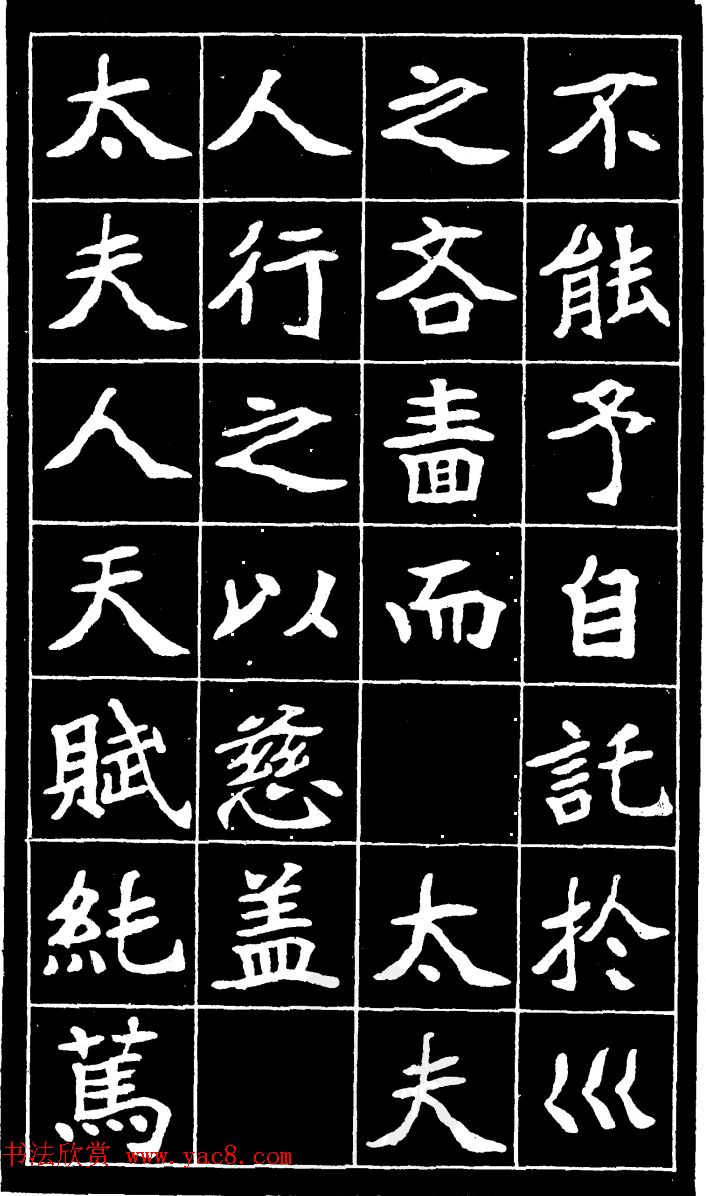 不能予自託於巛
之吝嗇而 太夫
人行之以慈盖
太夫人天賦純篤
书法欣赏 www.yac8.com